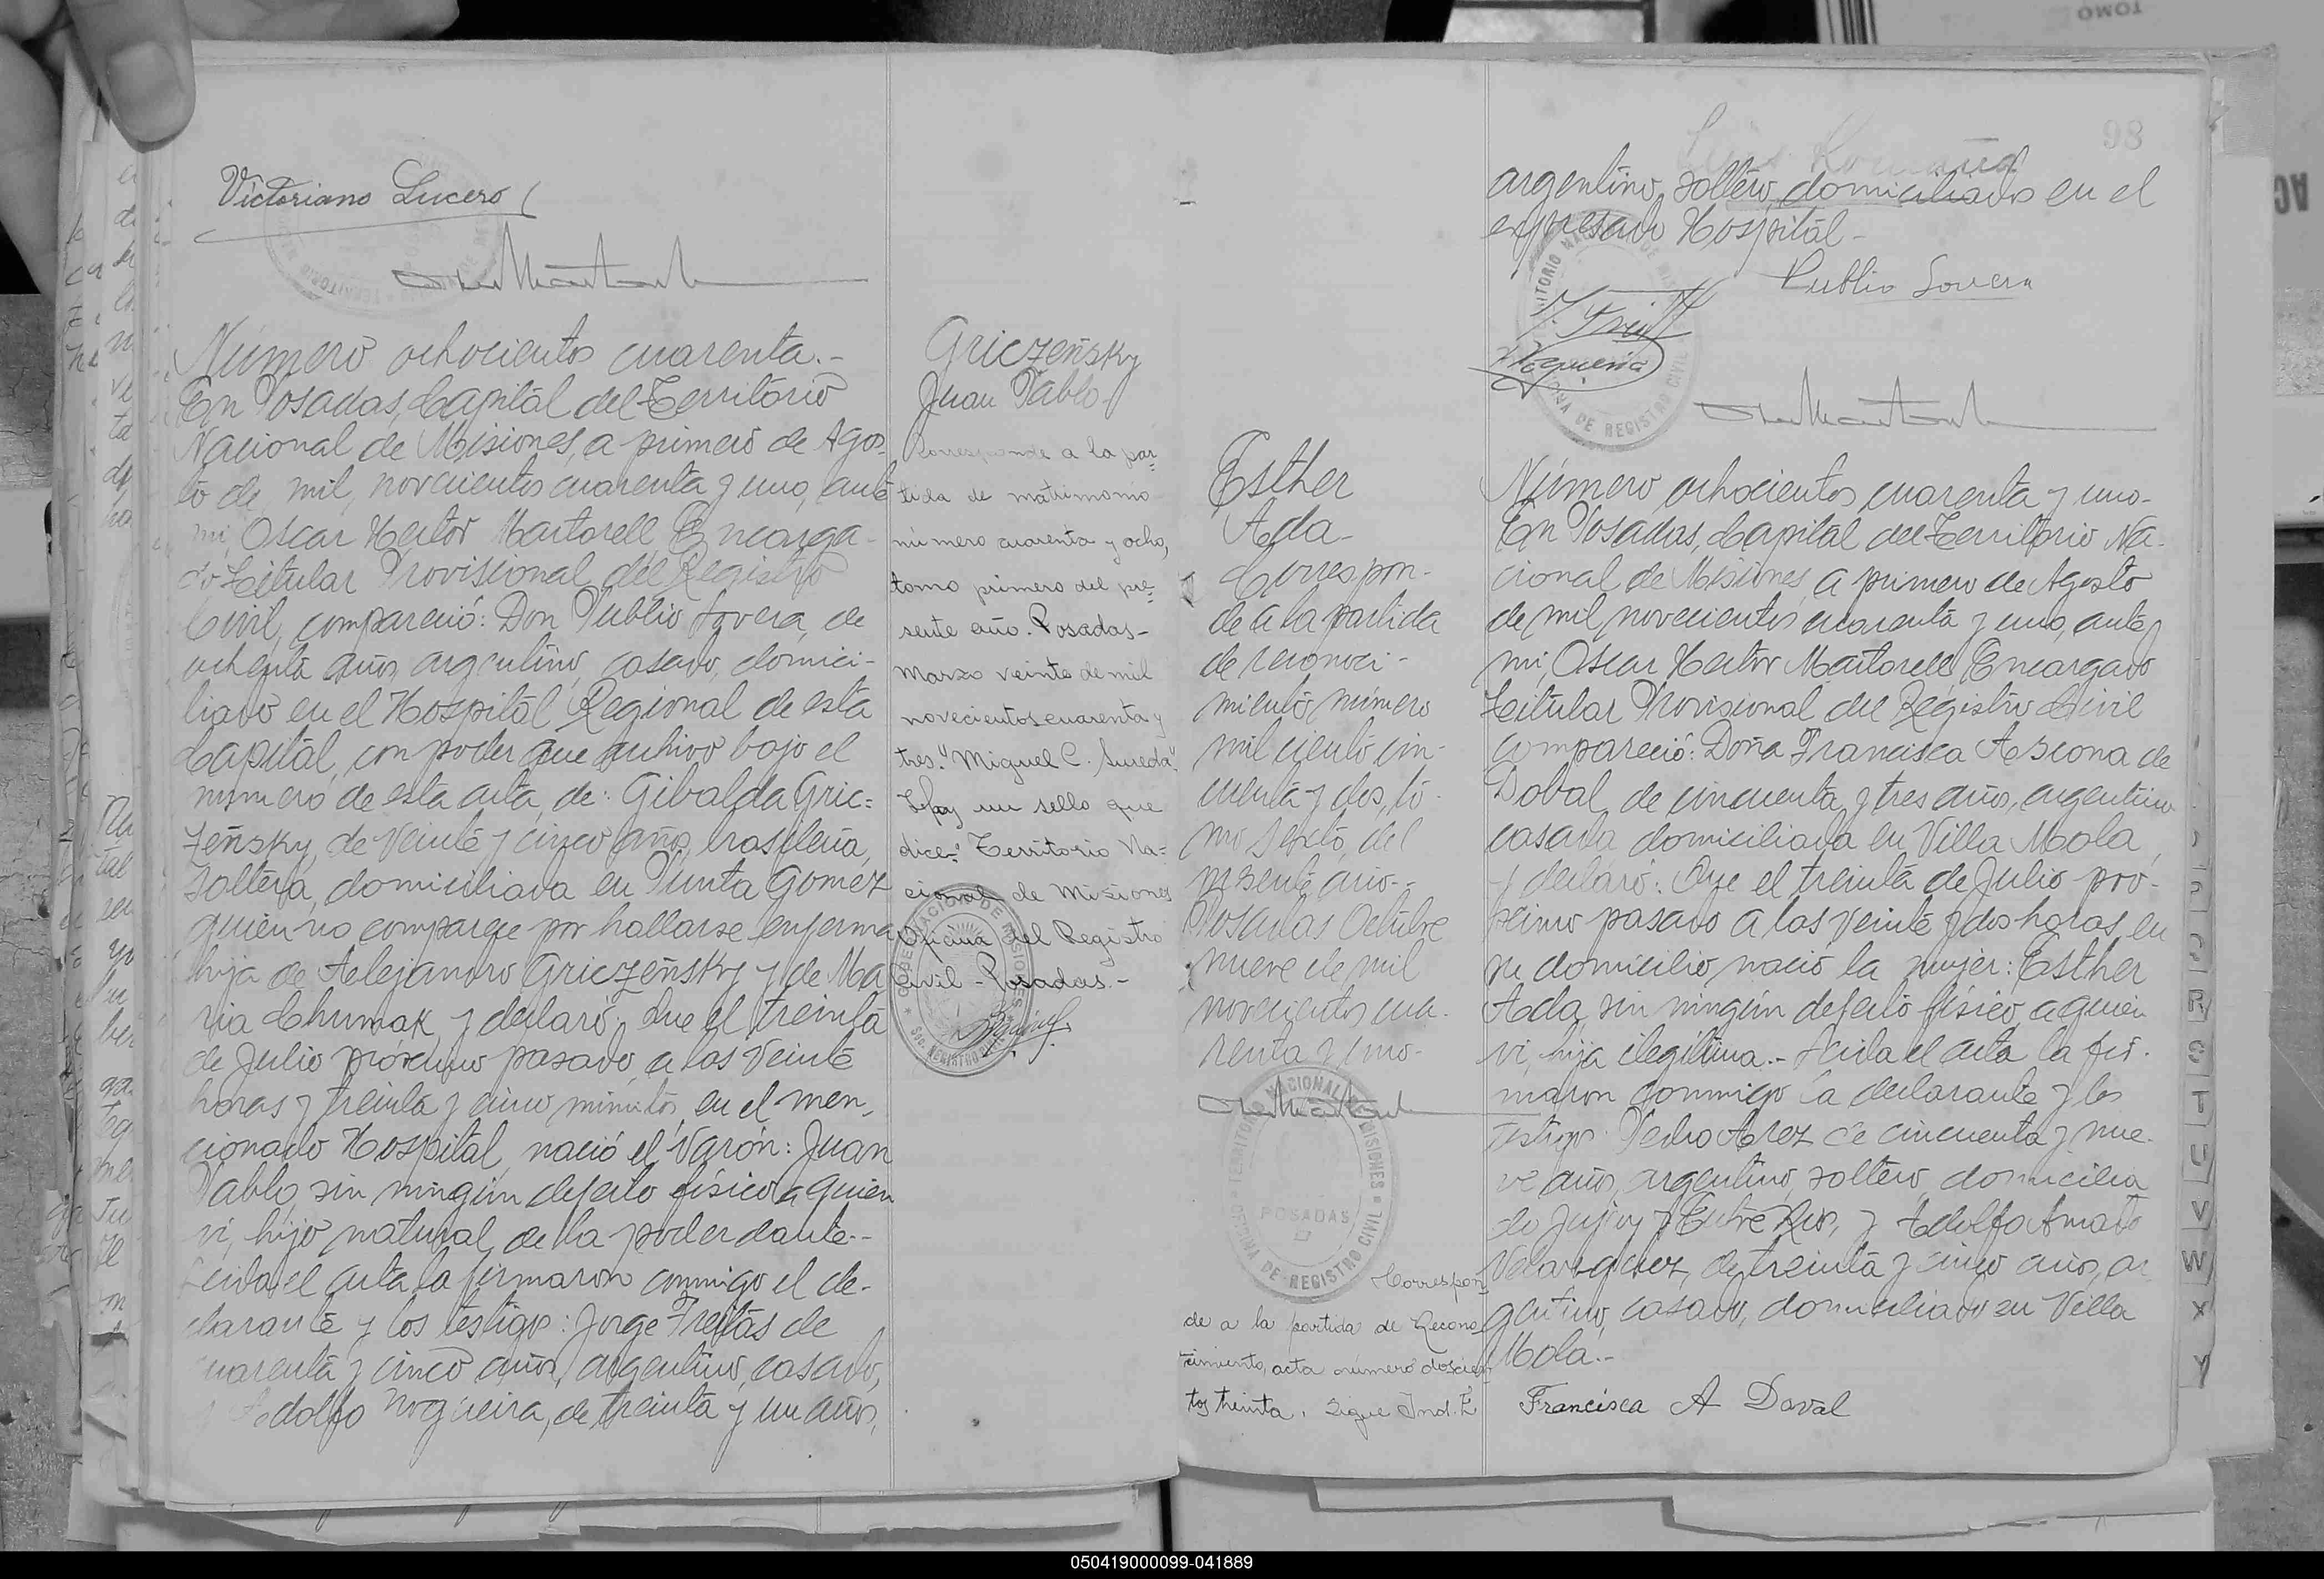 Victoriano Lucero
Número ochocientos cuarenta.-
En Posadas, Capital del Territorio
Nacional de Misiones, a primero de Agos-
to de mil novecientos cuarenta y uno, ante
mi, Oscar Hector Martorell, Encarga-
do Titular Provisional del Registro
Civil, compareció: Don Publio Lovera, de
ochenta años, argentino, casado, domici-
liado en el Hospital Regional de esta
Capital, con poder que archivo bajo el
numero de esta acta, de: Gibalda Gric=
zeñsky, de veinte y cinco años, brasileña,
soltera, domiciliada en Punta Gomez
quien no comparece por hallarse enferma
hija de Alejandro Griczeñsky y de Ma
ria Chumak, y declaró: Que el treinta
de Julio próximo pasado, a las veinte
horas y treinta y cinco minutos en el men-
cionado Hospital, nació el varón: Juan
Pablo, sin ningún defecto físico, a quien
vi, hijo natural de la poderdante.-
Leida el acta la firmaron conmigo el de-
clarante y los testigos: Jorge Freitas de
cuarenta y cinco años, argentino, casado,
y Adolfo Nogueira, de treinta y un años,
Griczeñsky
Juan Pablo-
Corresponde a la par=
tida de matrimonio
número cuarenta y ocho,
tomo primero del pre=
sente año. Posadas-
Marzo veinte de mil
novecientos cuarenta y
tres. "Miguel C. Sureda"
Hay un sello que
dice=" Territorio Na=
cional de Misiones
Oficina del Registro
Civil - Posadas.-
98
argentino, soltero, domiciliado en el
expresado Hospital-
Publio Lovera
J. Freit
Nogueira
OFICINA DE REGISTRO CIVIL
Esther
Ada-
Correspon-
de a la partida
de reconoci-
miento número
mil ciento cin-
cuenta y dos, to-
mo sexto, del
presente año.-
Posadas Octubre
nueve de mil
novecientos cua-
renta y uno-
TERRITORIO NACIONAL DE MISIONES
POSADAS
OFICINA DE REGISTRO CIVIL
Correspon-
de a la partida de Recono-
cimiento, acta número doscien
tos treinta. Sigue Ind. E
Número ochocientos cuarenta y uno-
En Posadas, Capital del Territorio Na-
cional de Misiones, a primero de Agosto
de mil novecientos cuarenta y uno, ante
mi, Oscar Hector Martorell, Encargado
Titular Provisional del Registro Civil
compareció: Doña Francisca Ascona de
Dobal, de cincuenta y tres años, argentina
casada, domiciliada en Villa Mola,
y declaró: Que el treinta de Julio pró-
ximo pasado a las veinte y dos horas, en
su domicilio nació la mujer: Esther
Ada, sin ningún defecto físico, a quien
vi, hija ilegitima.- Leida el acta la fir-
maron conmigo la declarante y los
testigos: Pedro Arez de cincuenta y nue-
ve años, argentino, soltero, domicilia
do Jujuy y Entre Rios, y Adolfo Amado
Velazquez, de treinta y cinco años, ar
gentino, casado, domiciliado en Villa
Mola.-
Francisca A Daval
R
S
T
U
V
W
X
Y
TOMO
050419000099-041889